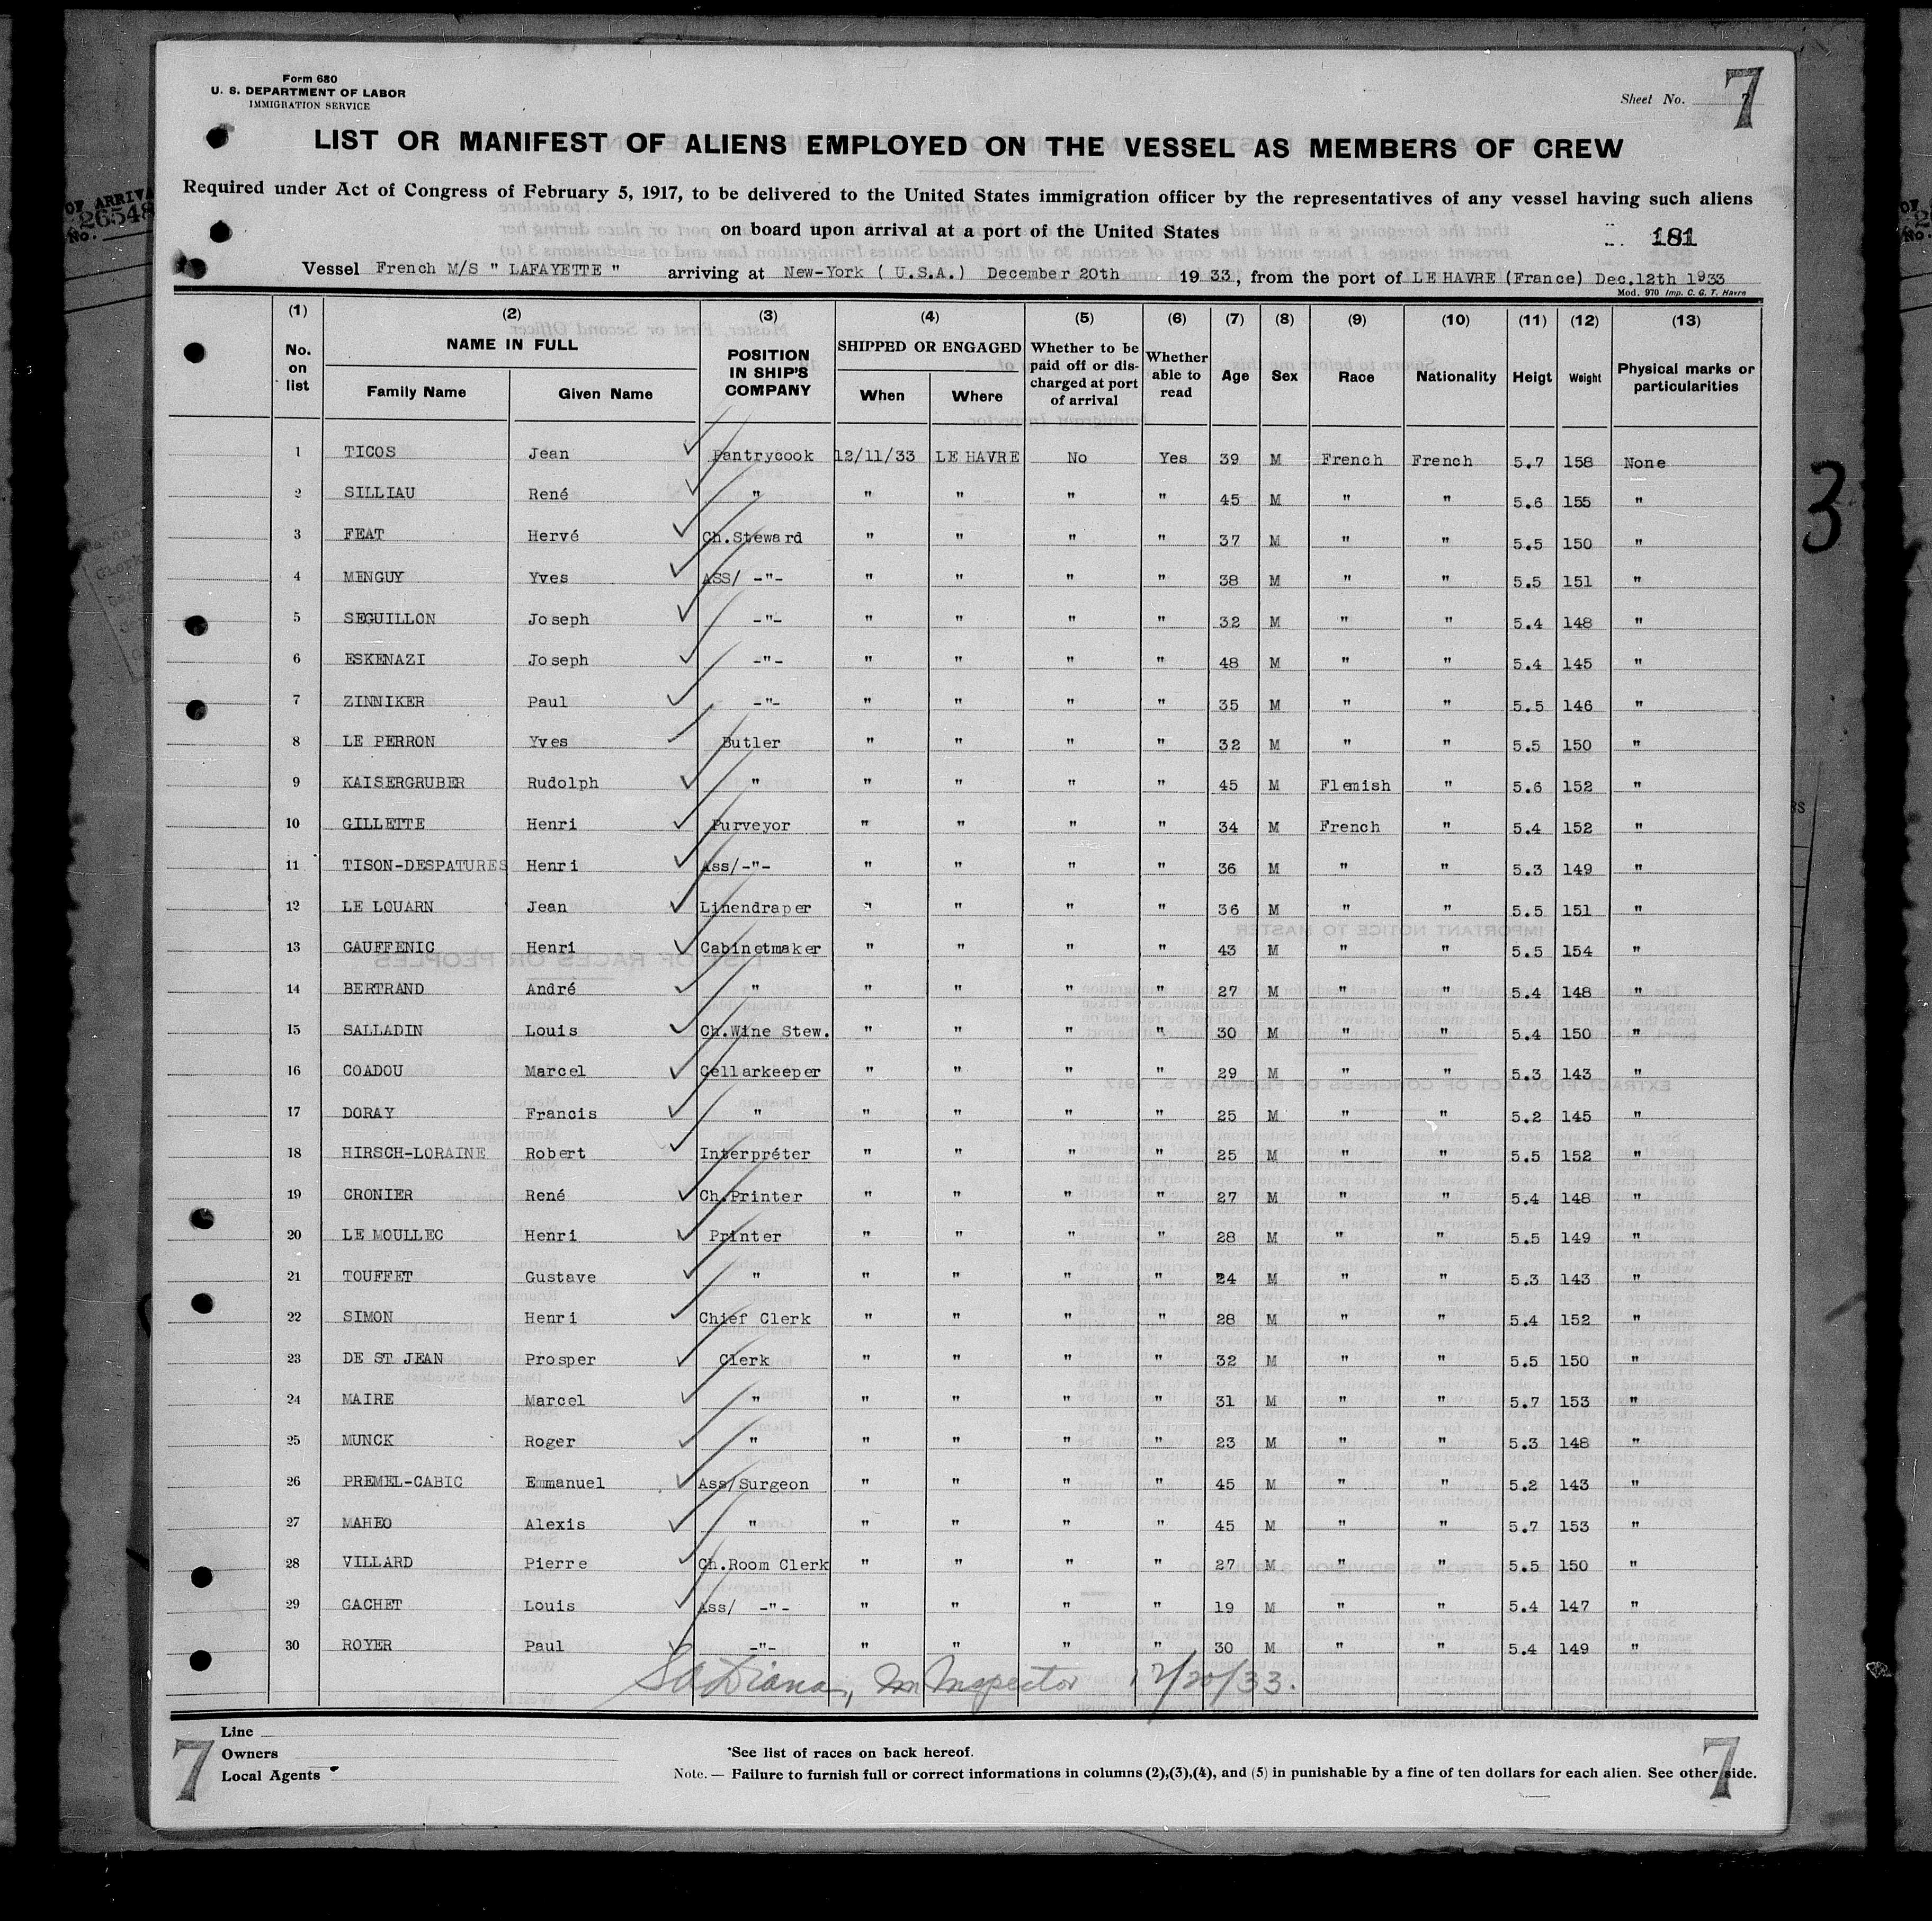 Form 680
U. S. DEPARTMENT OF LABOR
IMMIGRATION SERVICE
Sheet No. 7
7
LIST OR MANIFEST OF ALIENS EMPLOYED ON THE VESSEL AS MEMBERS OF CREW
Required under Act of Congress of February 5, 1917, to be delivered to the United States immigration officer by the representatives of any vessel having such aliens
on board upon arrival at a port of the United States
181
Vessel French M/S " LAFAYETTE " arriving at New-York ( U.S.A.) December 20th 19 33, from the port of LE HAVRE (France) Dec.12th 1933
Mod. 970 Imp. C. G. T. Havre
(1) (2) (3) (4) (5) (6) (7) (8) (9) (10) (11) (12) (13)
No. on list NAME IN FULL Family Name Given Name POSITION IN SHIP'S COMPANY SHIPPED OR ENGAGED When Where Whether to be paid off or discharged at port of arrival Whether able to read Age Sex Race Nationality Heigt Weight Physical marks or particularities
1 TICOS Jean Pantrycook 12/11/33 LE HAVRE No Yes 39 M French French 5.7 158 None
2 SILLIAU René " " " " " 45 M " " 5.6 155 "
3 FEAT Hervé Ch.Steward " " " " 37 M " " 5.5 150 "
4 MENGUY Yves ASS/ -"- " " " " 38 M " " 5.5 151 "
5 SEGUILLON Joseph -"- " " " " 32 M " " 5.4 148 "
6 ESKENAZI Joseph -"- " " " " 48 M " " 5.4 145 "
7 ZINNIKER Paul -"- " " " " 35 M " " 5.5 146 "
8 LE PERRON Yves Butler " " " " 32 M " " 5.5 150 "
9 KAISERGRUBER Rudolph " " " " " 45 M Flemish " 5.6 152 "
10 GILLETTE Henri Purveyor " " " " 34 M French " 5.4 152 "
11 TISON-DESPATURES Henri Ass/-"- " " " " 36 M " " 5.3 149 "
12 LE LOUARN Jean Linendraper " " " " 36 M " " 5.5 151 "
13 GAUFFENIC Henri Cabinetmaker " " " " 43 M " " 5.5 154 "
14 BERTRAND André " " " " " 27 M " " 5.4 148 "
15 SALLADIN Louis Ch.Wine Stew. " " " " 30 M " " 5.4 150 "
16 COADOU Marcel Cellarkeeper " " " " 29 M " " 5.3 143 "
17 DORAY Francis " " " " " 25 M " " 5.2 145 "
18 HIRSCH-LORAINE Robert Interpréter " " " " 25 M " " 5.5 152 "
19 CRONIER René Ch.Printer " " " " 27 M " " 5.4 148 "
20 LE MOULLEC Henri Printer " " " " 28 M " " 5.5 149 "
21 TOUFFET Gustave " " " " " 24 M " " 5.3 143 "
22 SIMON Henri Chief Clerk " " " " 28 M " " 5.4 152 "
23 DE ST JEAN Prosper Clerk " " " " 32 M " " 5.5 150 "
24 MAIRE Marcel " " " " " 31 M " " 5.7 153 "
25 MUNCK Roger " " " " " 23 M " " 5.3 148 "
26 PREMEL-CABIC Emmanuel Ass/Surgeon " " " " 45 M " " 5.2 143 "
27 MAHEO Alexis " " " " " 45 M " " 5.7 153 "
28 VILLARD Pierre Ch.Room Clerk " " " " 27 M " " 5.5 150 "
29 GACHET Louis Ass/ -"- " " " " 19 M " " 5.4 147 "
30 ROYER Paul -"- " " " " 30 M " " 5.4 149 "
Inspector 12/20/33.
3
Line
Owners
Local Agents
*See list of races on back hereof.
Note. — Failure to furnish full or correct informations in columns (2),(3),(4), and (5) in punishable by a fine of ten dollars for each alien. See other side.
7
7
OF ARRIVA
No. 26548